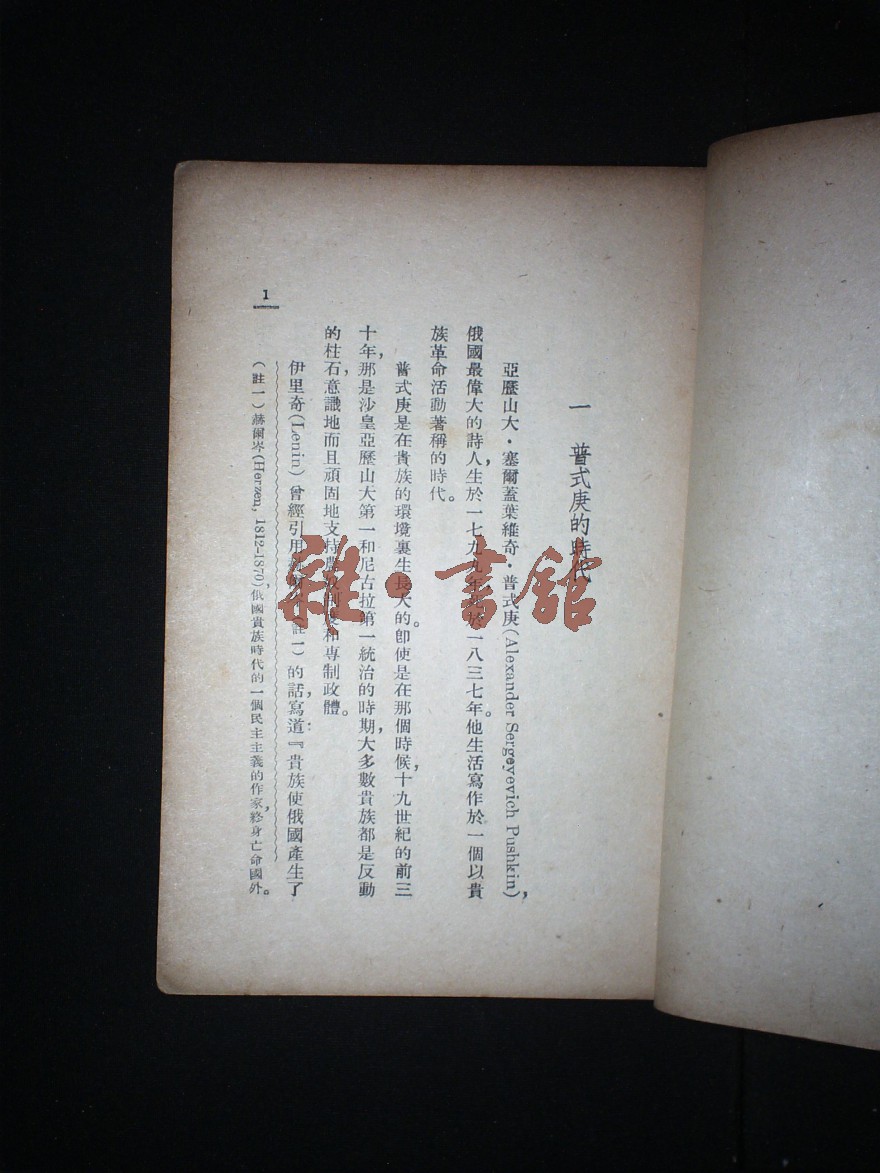 一 普式庚的時代
亞歷山大·塞爾蓋葉維奇·普式庚(Alexander Sergeyevich Pushkin),
俄國最偉大的詩人,生於一七九九年,於一八三七年。他生活寫作於一個以貴
族革命活動著稱的時代。
普式庚是在貴族的環境裏生長大的。卽使是在那個時候,十九世紀的前三
十年,那是沙皇亞歷山大第一和尼古拉第一統治的時期,大多數貴族都是反動
的柱石,意識地而且頑固地支持和專制政體。
伊里奇(Lenin)曾經引用(註一)的話,寫道:『貴族使俄國產生了
(註一)赫爾岑(Herzen, 1812-1870),俄國貴族時代的一個民主主義的作家,終身亡命國外。
1
雜·書館